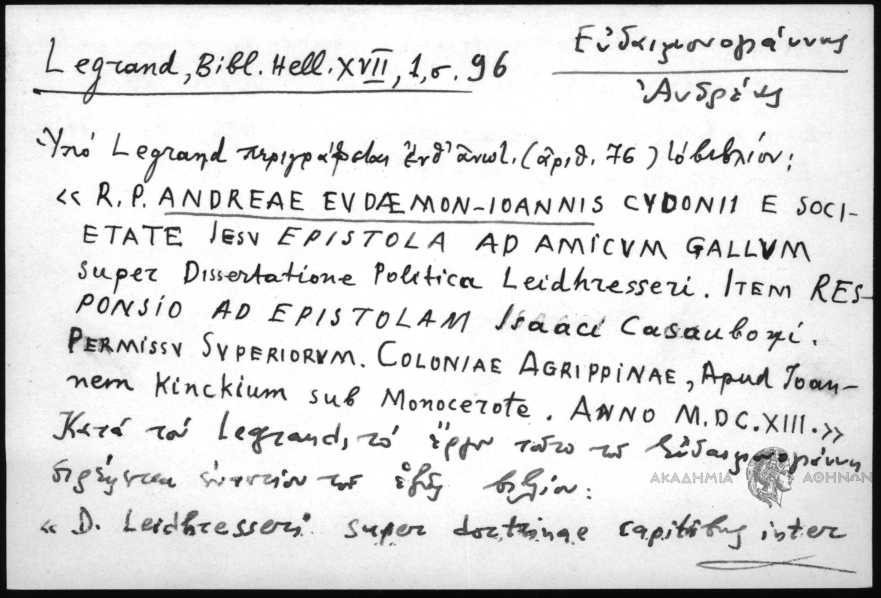 Legrand, Bibl. Hell. XVII, 1, σ. 96
Εὐδαιμονογιάννης
Ἀνδρέας
Ὑπό Legrand περιγράφεται ἐνθ' ἀνωτ. (ἀριθ. 76) τὸ βιβλίον:
« R. P. ANDREAE EVDÆMON-IOANNIS CYDONII E SOCI-
ETATE IESV EPISTOLA AD AMICVM GALLVM
super Dissertatione Politica Leidhresseri. ITEM RES-
PONSIO AD EPISTOLAM Isaaci Casauboni.
PERMISSV SVPERIORVM. COLONIAE AGRIPPINAE, Apud Ioan-
nem Kinckium sub Monocerote. ANNO M.DC.XIII. »
Κατά τον Legrand, τό ἔργον τοῦτο τοῦ Εὐδαιμονογιάννη
στρέφεται ἐναντίον τοῦ ἑξῆς βιβλίου:
« D. Leidhresseri super doctrinae capitibus inter
ΑΚΑΔΗΜΙΑ ΑΘΗΝΩΝ